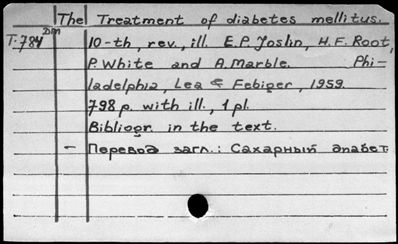 The Treatment of diabetes mellitus.
T-784 DM 10-th, rev., ill. E.P. Joslin, H.F. Root,
P. White and A. Marble. Phi-
ladelphia, Lea & Febiger, 1959.
798 p. with ill., 1 pl.
Bibliogr. in the text.
– Перевод загл.: Сахарный диабет.